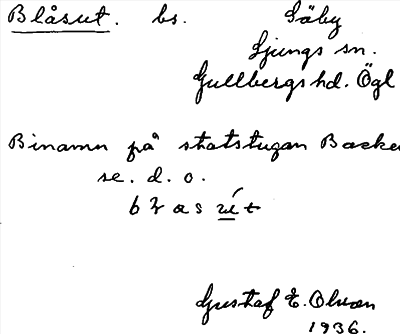 Blåsut. bs. Säby
Ljungs sn.
Gullbergs hd. Ögl
Binamn på statstugan Backe
se. d. o.
Gustaf E. Olsson
1936.